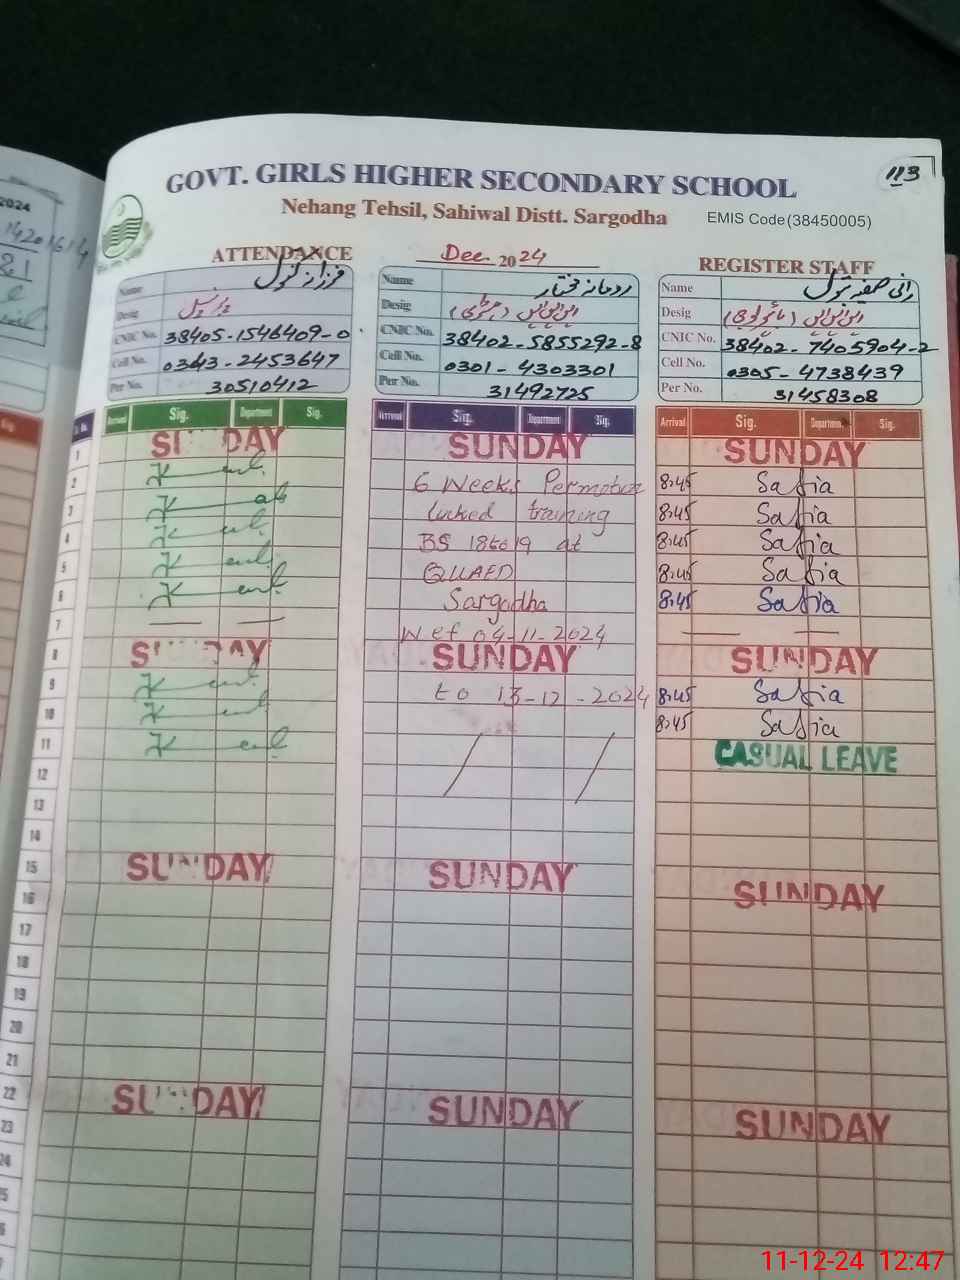 113
GOVT. GIRLS HIGHER SECONDARY SCHOOL
Nehang Tehsil, Sahiwal Distt. Sargodha EMIS Code (38450005)
2024
ATTENDANCE Dec. 2024 REGISTER STAFF
Name فرزانہ کنول
Desig پرنسپل
CNIC No. 38405-1546409-0
Cell No. 0343-2453647
Per No. 30510412
Name رومانہ مختار
Desig ایس ایس ایس
CNIC No. 38402-5855292-8
Cell No. 0301-4303301
Per No. 31492725
Name رانی صفیہ بتول
Desig ایس ایس ایس
CNIC No. 38402-7405904-2
Cell No. 0305-4738439
Per No. 31458308
Arrival Sig. Department Sig. Arrival Sig. Department Sig. Arrival Sig. Department Sig.
1 SUNDAY SUNDAY SUNDAY
2 6 Weeks Permotion 8:45 Safia
3 lincked training 8:45 Safia
4 BS 18 to 19 at 8:45 Safia
5 QUAED 8:45 Safia
6 Sargodha 8:45 Safia
7 Wef 04-11-2024
8 SUNDAY SUNDAY SUNDAY
9 to 13-12-2024 8:45 Safia
10 8:45 Safia
11 CASUAL LEAVE
12
13
14
15 SUNDAY SUNDAY SUNDAY
16
17
18
19
20
21
22 SUNDAY SUNDAY SUNDAY
23
24
11-12-24 12:47